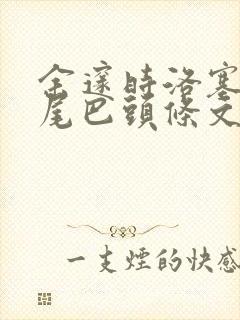 金邃時洛塞
尾巴頭條文
一支煙的快感